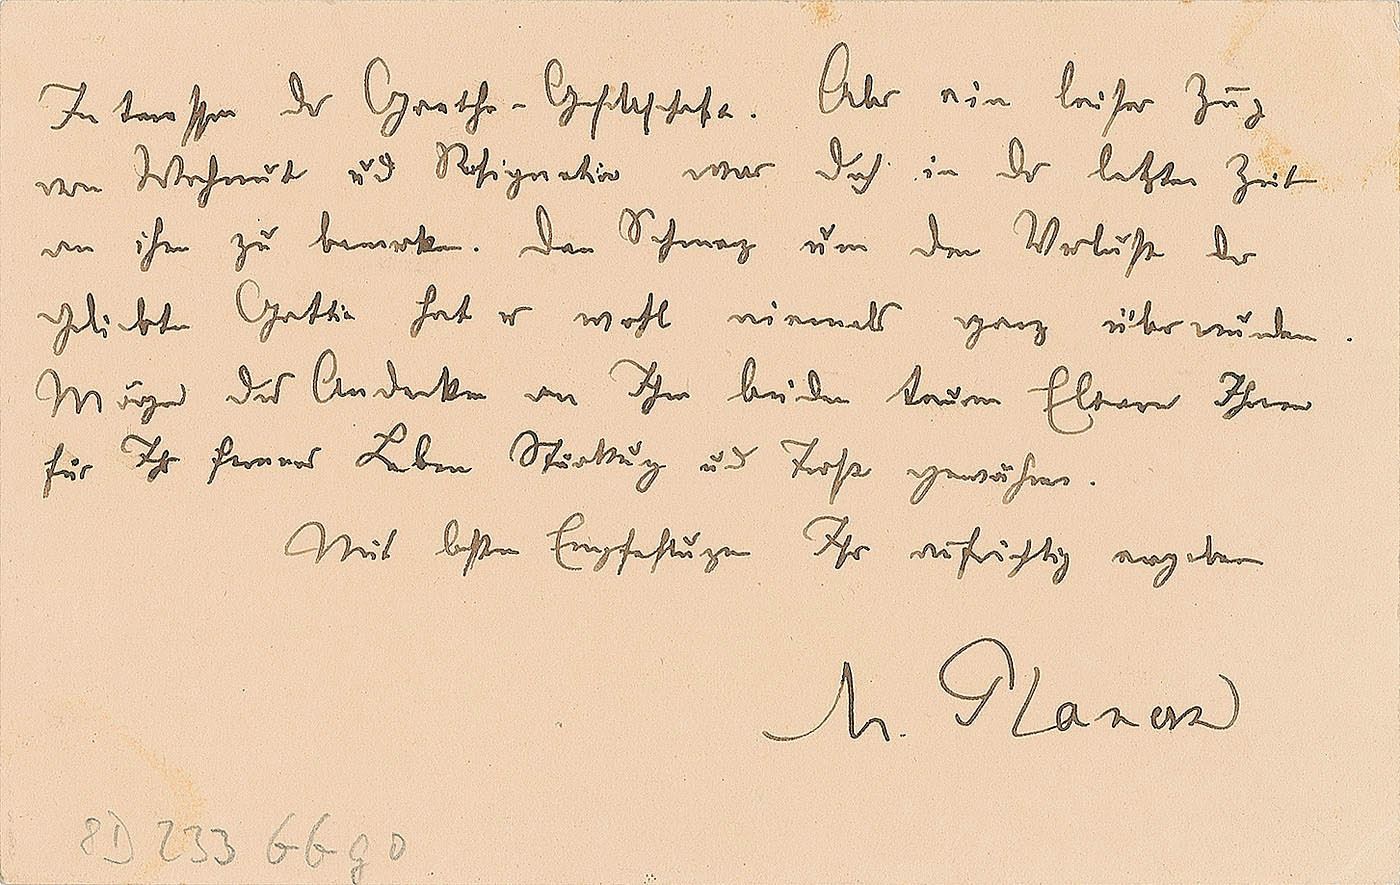 Interessen der Goethe-Gesellschaft. Aber ein leiser Zug
von Wehmut und Resignation war doch in der letzten Zeit
an ihm zu bemerken. Den Schmerz um den Verlust der
geliebten Gattin hat er wohl niemals ganz überwunden.
Möge das Andenken an Ihre beiden teuren Eltern Ihnen
für Ihr ferneres Leben Stärkung und Trost gewähren.
Mit besten Empfehlungen Ihr aufrichtig ergebener
M. Planck
8D 233 66 90